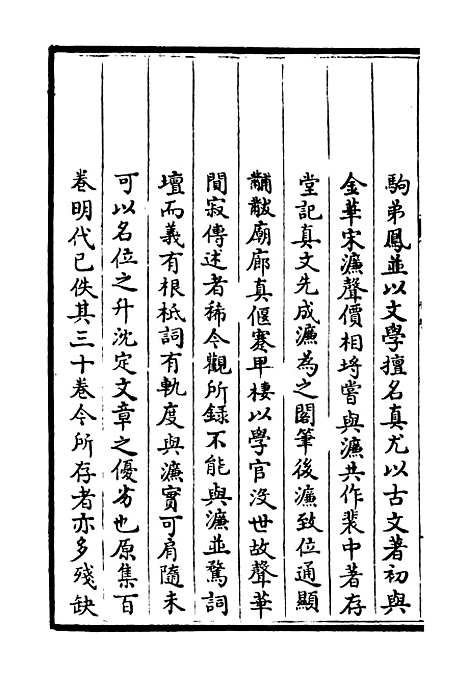 駒弟鳳並以文學擅名真尤以古文著初與
金華宋濂聲價相埒嘗與濂共作裴中著存
堂記真文先成濂為之閣筆後濂致位通顯
黼黻廟廊真偃蹇甲棲以學官沒世故聲華
闃寂傳述者稀今觀所錄不能與濂並騖詞
壇而義有根柢詞有軌度與濂實可肩隨未
可以名位之升沈定文章之優劣也原集百
卷明代已佚其三十卷今所存者亦多殘缺